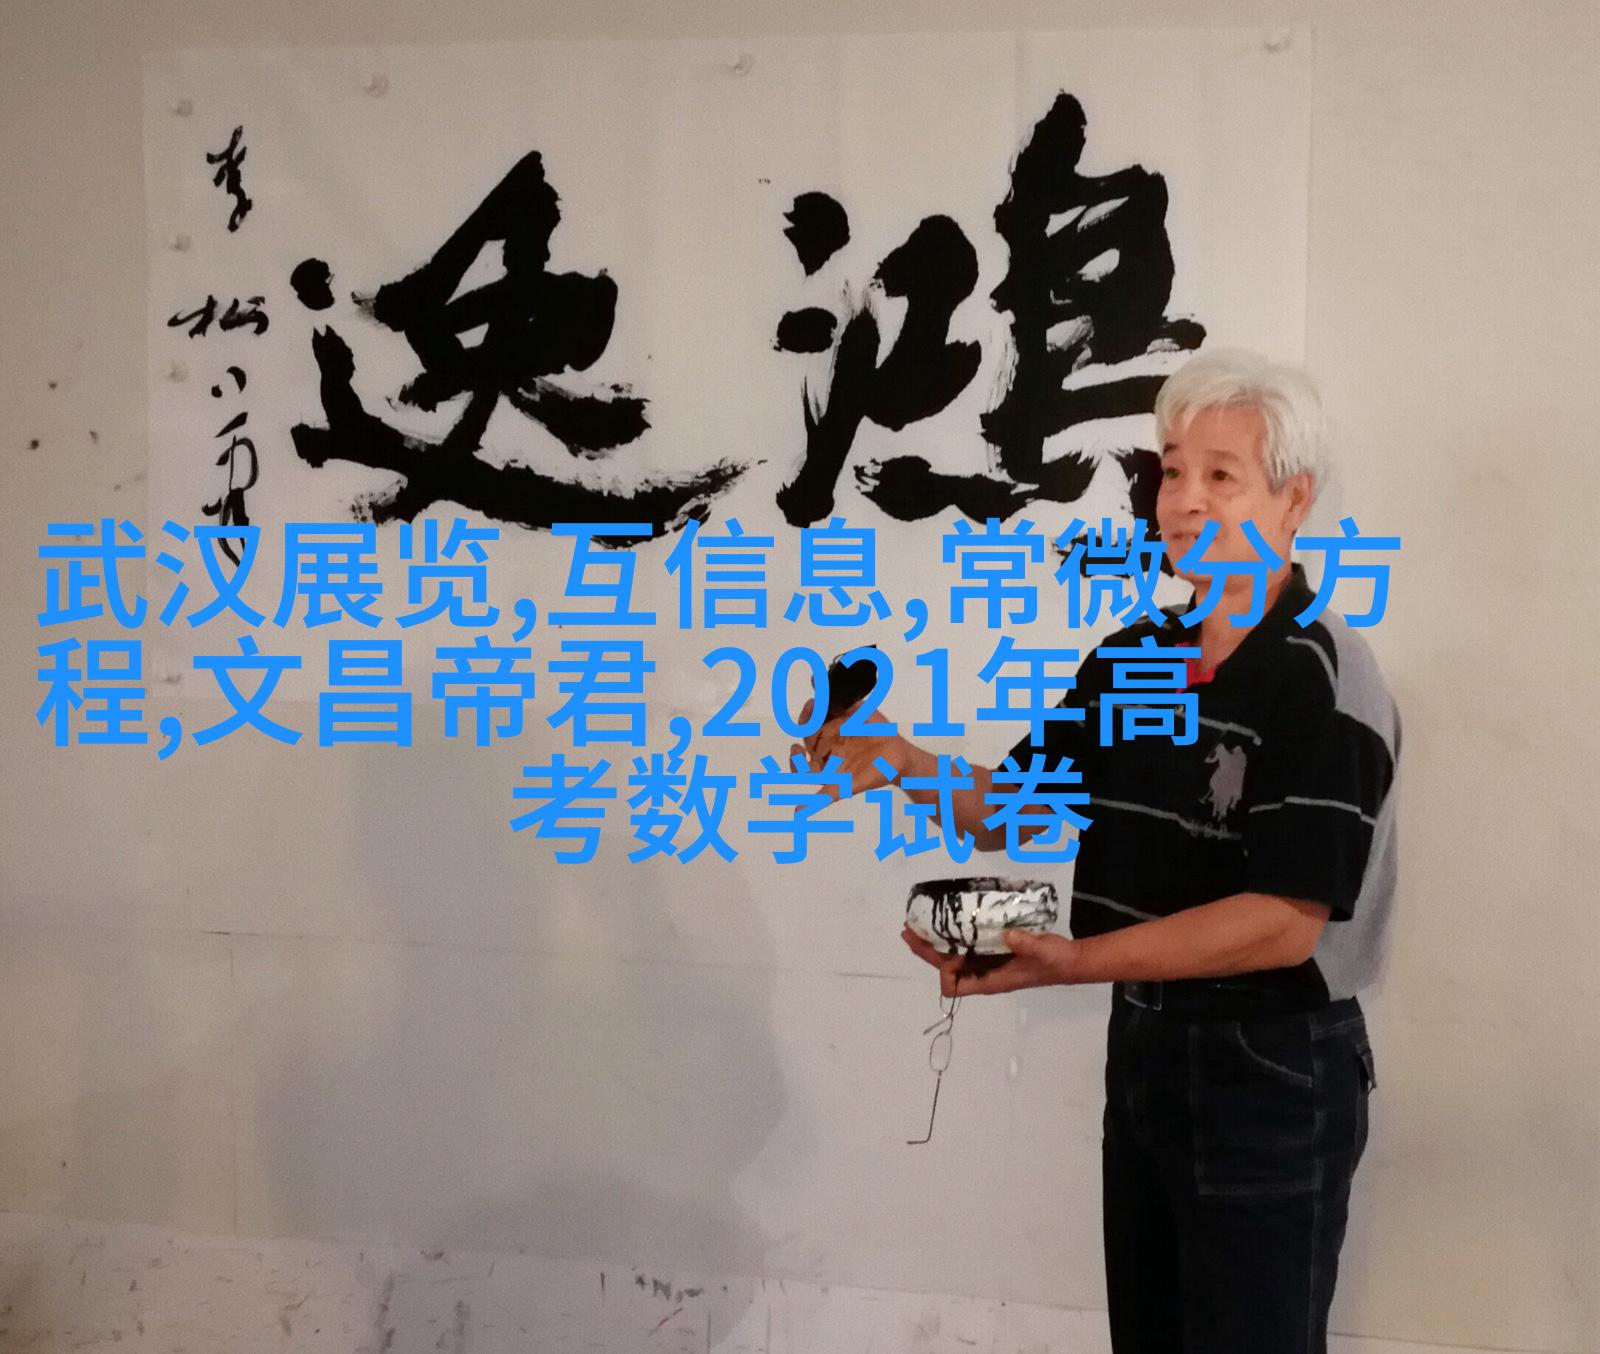 鸿逸
李松
武汉展览,互信息,常微分方
程,文昌帝君,2021年高
考数学试卷